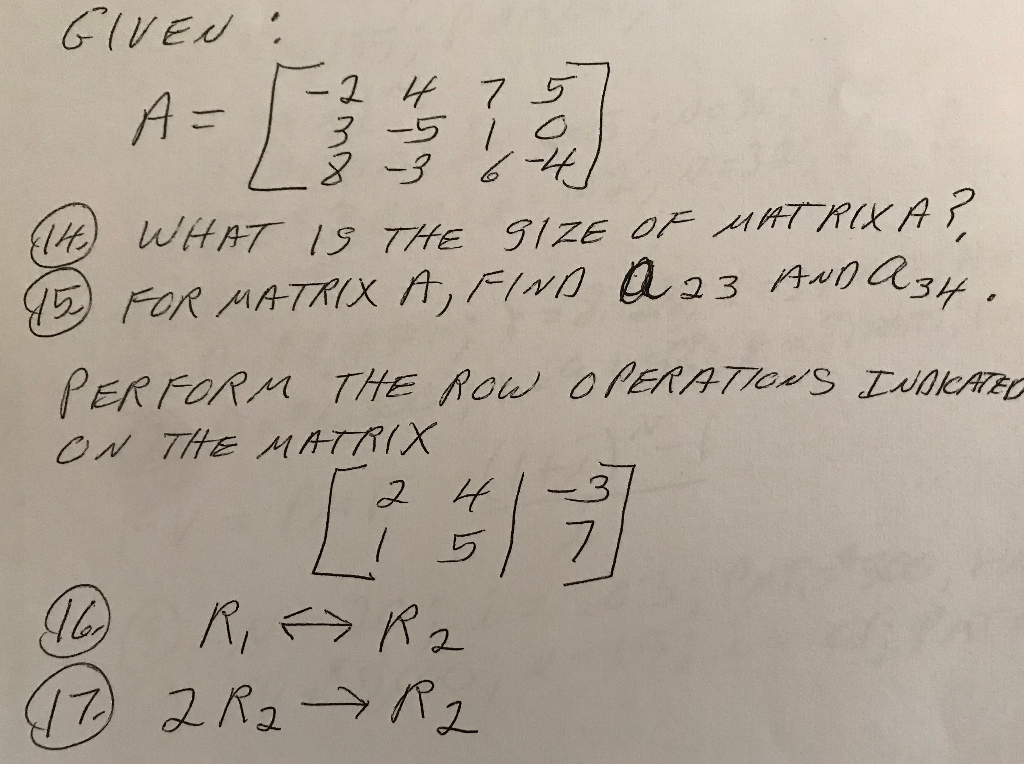 GIVEN :
A = [ -2 4 7 5
3 -5 1 0
8 -3 6 -4 ]
14. WHAT IS THE SIZE OF MATRIX A?,
15. FOR MATRIX A, FIND a23 AND a34.
PERFORM THE ROW OPERATIONS INDICATED
ON THE MATRIX
[ 2 4 | -3
1 5 | 7 ]
16. R1 ↔ R2
17. 2R2 → R2